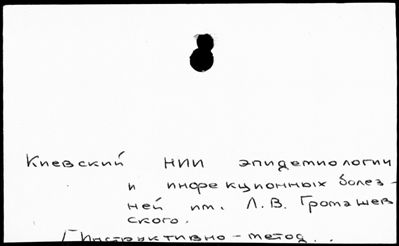 Киевский НИИ эпидемиологии
и инфекционных болез-
ней им. Л.В. Громашев
ского.
Инструктивно-метод...